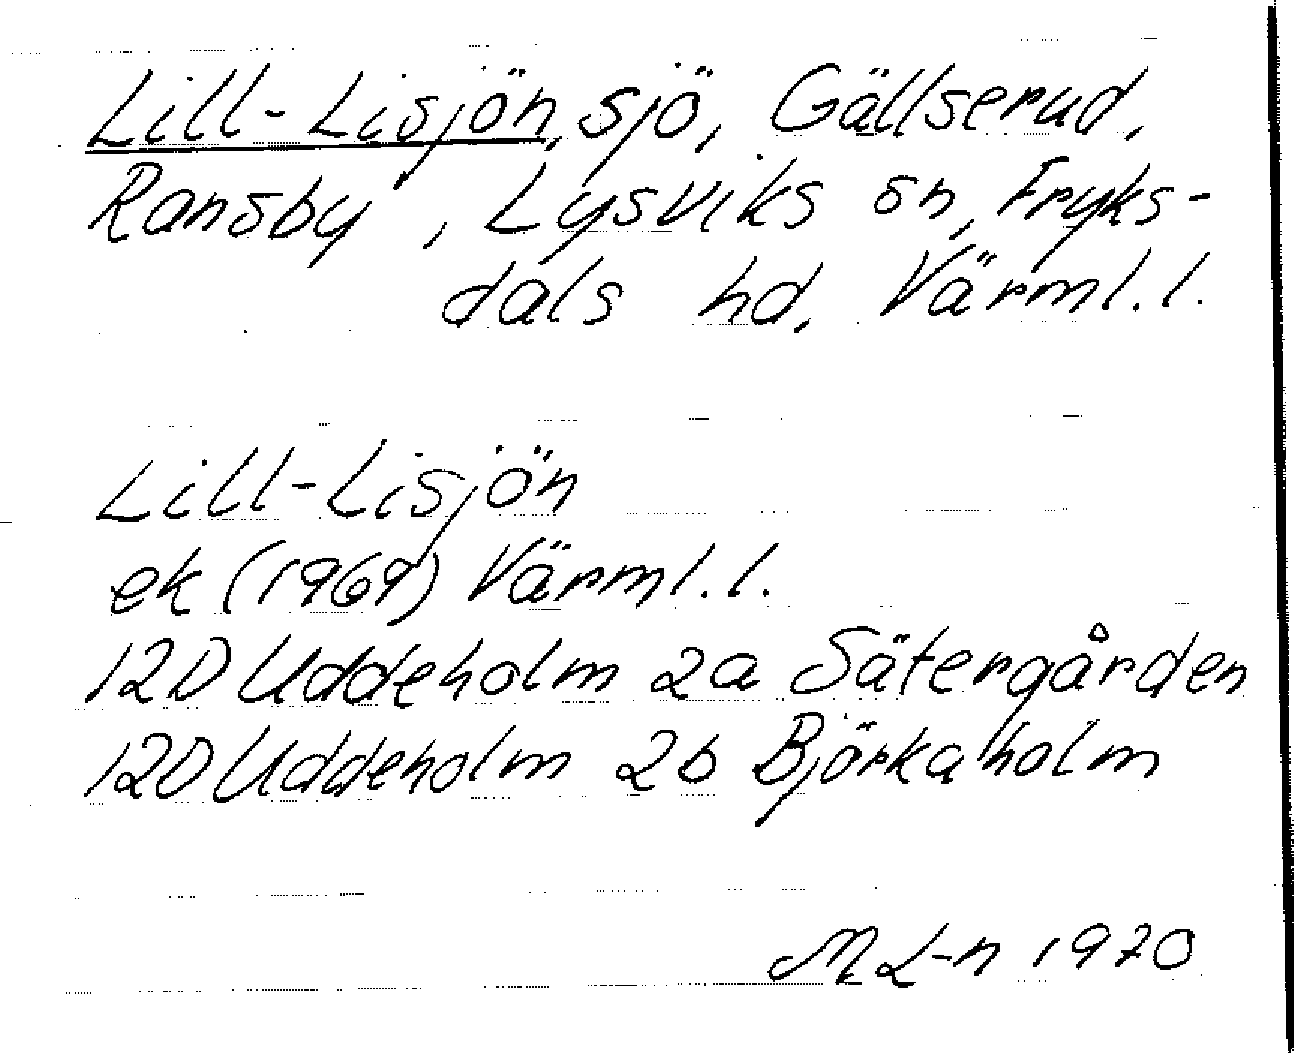 Lill-Lisjön, sjö, Gällserud,
Ransby, Lysviks sn, Fryks-
dals hd, Värml. l.
Lill-Lisjön
ek (1969) Värml. l.
12D Uddeholm 2a Sätergården
12D Uddeholm 2b Björkaholm
M L-n 1970